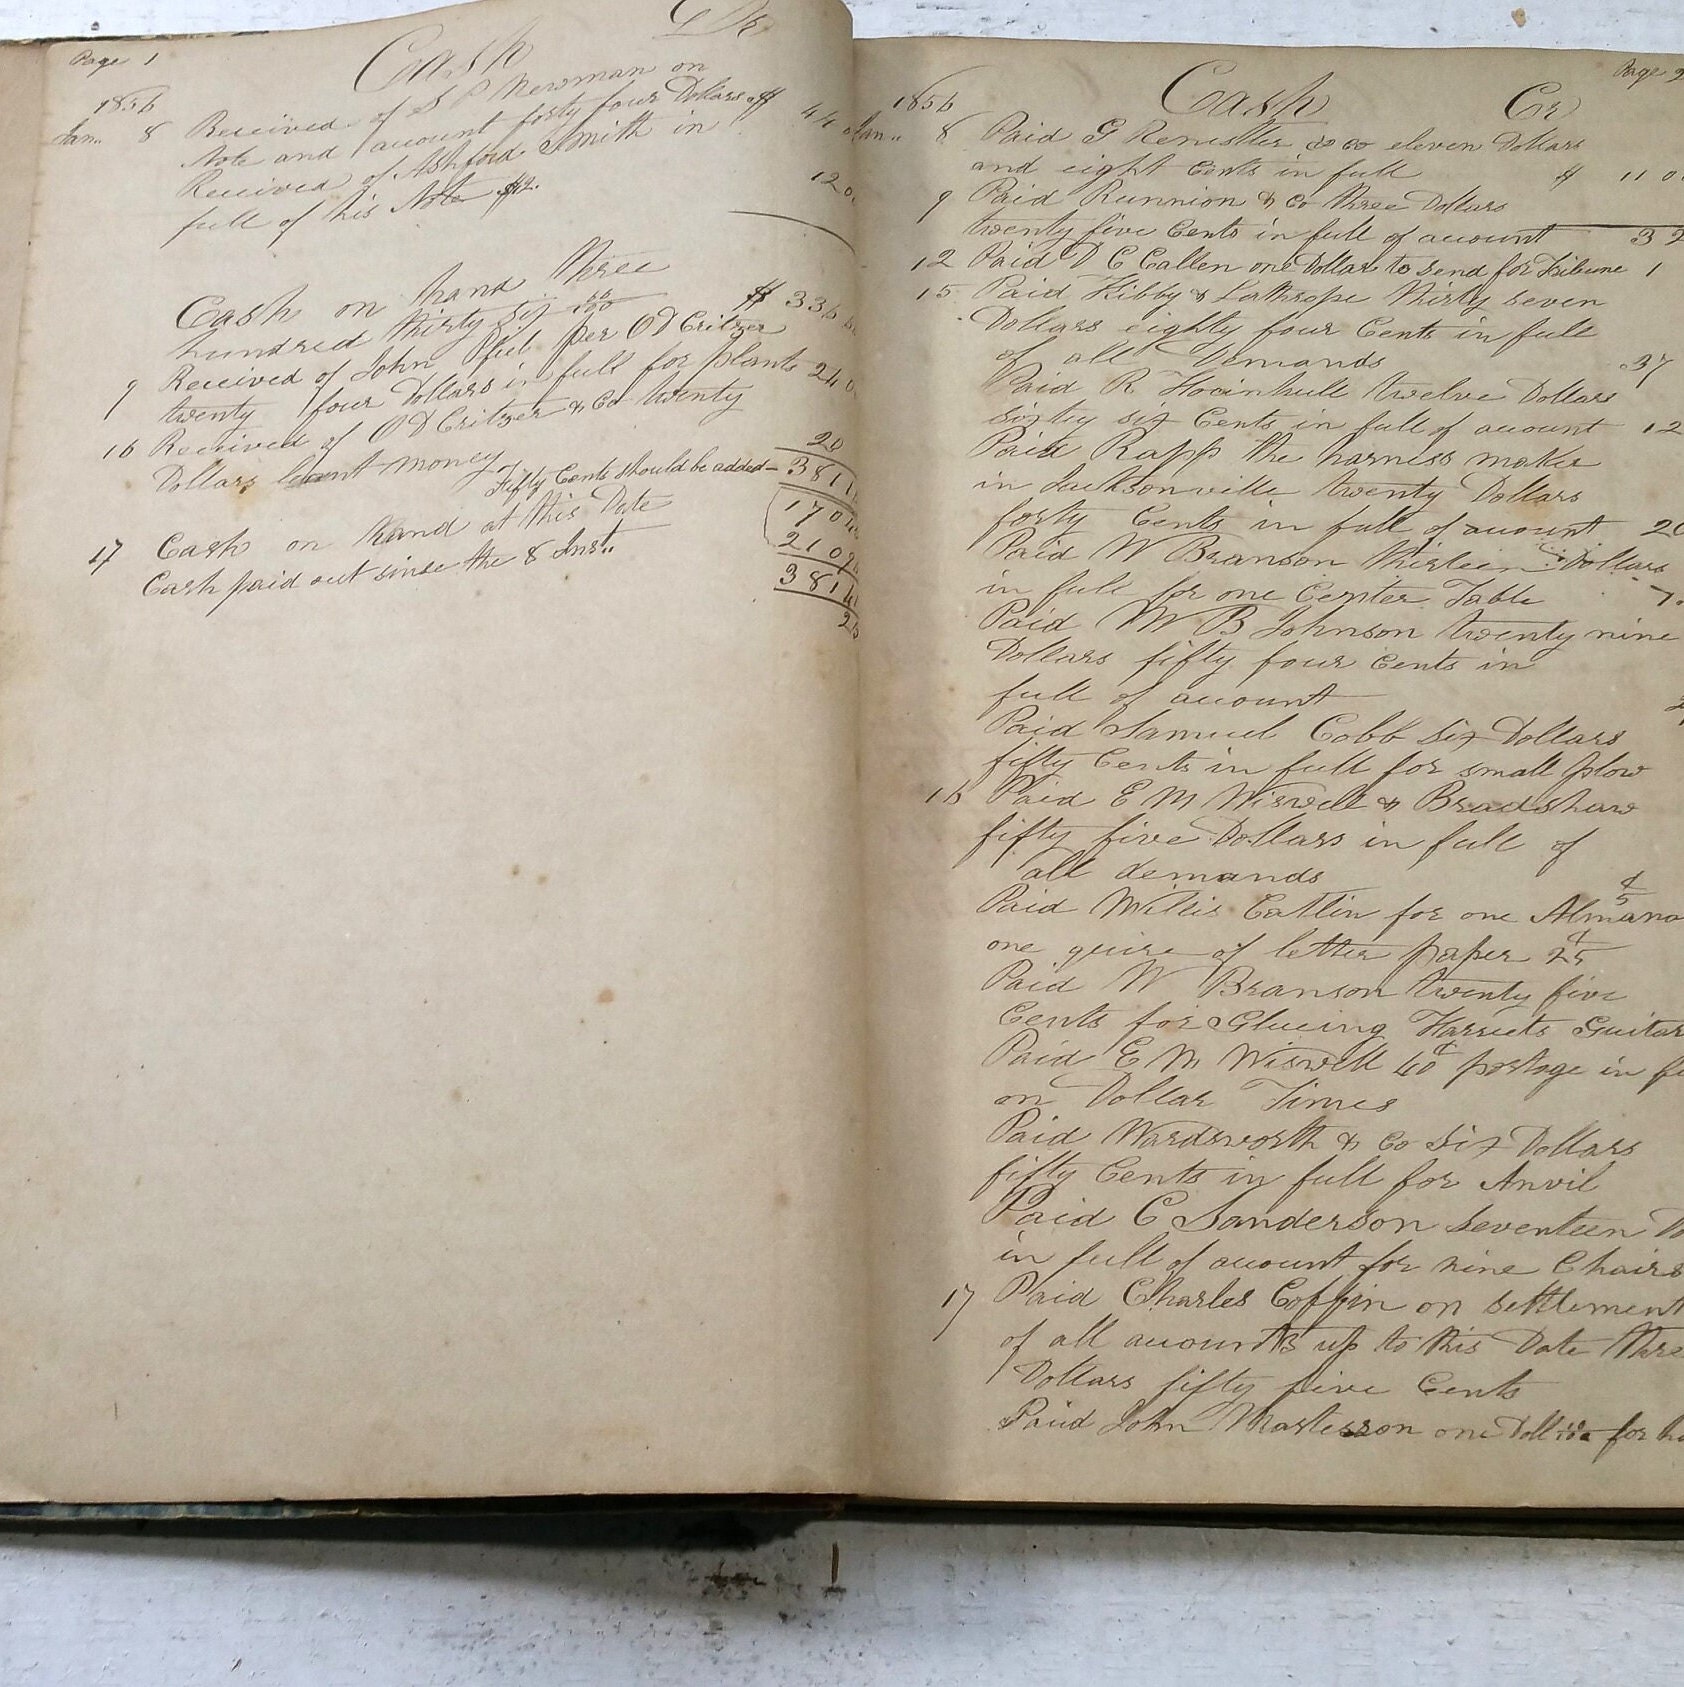 Page 1
Cash Dr
1856
Jan.. 8 Received of S P Newman on
Note and account forty four Dollars $ 44
Received of Ashford Smith in
full of his Note $12. 120
Cash on hand three
hundred thirty six 66/100 $ 336
9 Received of John per O D Critzer
twenty four Dollars in full for plants 240
16 Received of O D Critzer & Co twenty
Dollars lent money 20
Fifty Cents should be added – 381 1
17 Cash on hand at this Date 170 4
Cash paid out since the 8 Inst.. 210 9
381 4
2
Page 2
1856 Cash Cr
Jan.. 8 Paid G & Co eleven Dollars
and eight Cents in full $ 11 0
9 Paid Runnion & Co three Dollars
twenty five Cents in full of account 3 2
12 Paid D C Callen one Dollar to send for Tribune 1
15 Paid Kibby & Lathrope thirty seven
Dollars eighty four Cents in full
of all Demands 37
Paid R twelve Dollars
sixty six Cents in full of account 12
Paid Rapp the harness maker
in Jacksonville twenty Dollars
forty Cents in full of account 20
Paid W Branson thirteen Dollars
in full for one Center Table
Paid M B Johnson twenty nine
Dollars fifty four Cents in
full of account
Paid Samuel Cobb six Dollars
fifty Cents in full for small plow
16 Paid E M Wiswell & Bradshaw
fifty five Dollars in full of
all demands
Paid Willis Catlin for one Almana 5¢
one quire of letter paper 25¢
Paid W Branson twenty five
Cents for Glueing Harriets Guitar
Paid E M Wiswell 40¢ postage in fu
on Dollar Times
Paid Wardsworth & Co Six Dollars
fifty Cents in full for Anvil
Paid C Sanderson seventeen Do
in full of account for nine Chairs
17 Paid Charles Coffin on settlement
of all accounts up to this Date thre
Dollars fifty five Cents
Paid John Masterson one Doll for